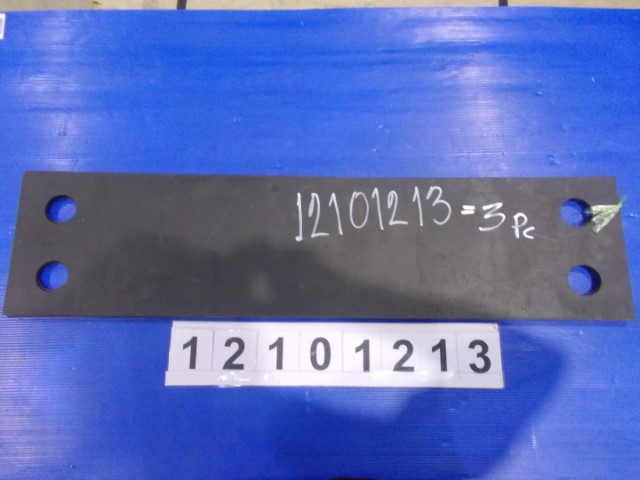 12101213=3Pc
12101213